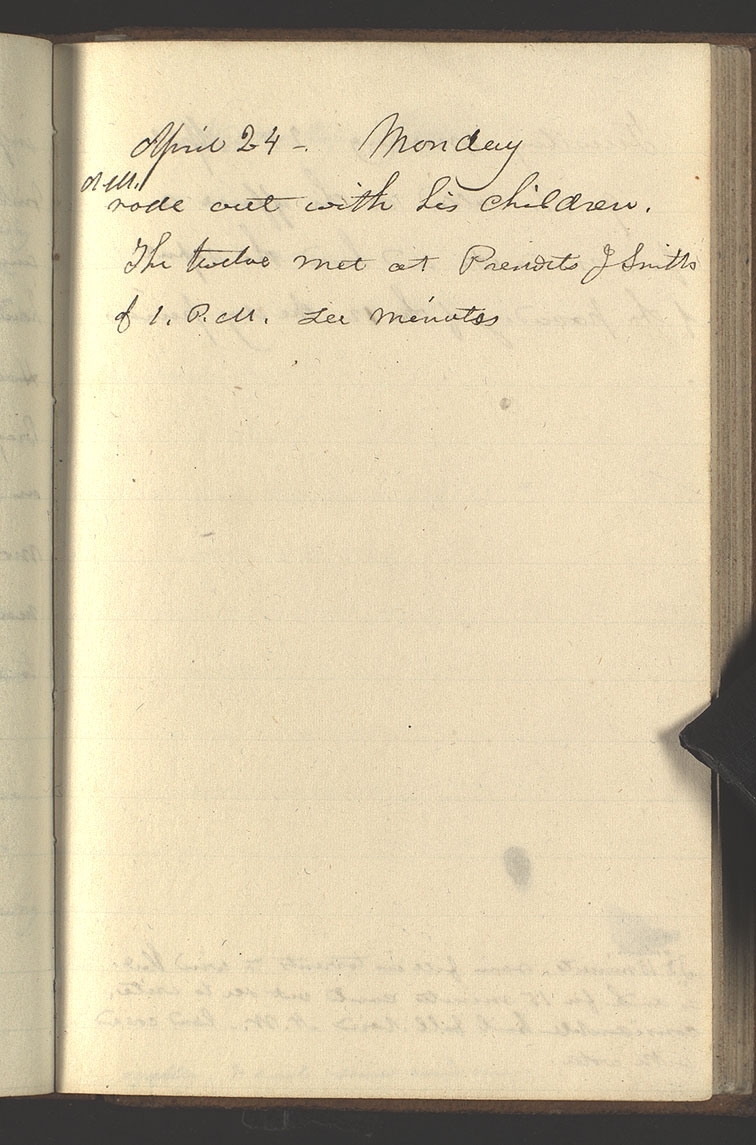 April 24 -. Monday
A.M.
rode out with his children.
The twelve met at Presidents J Smiths
1. P.M. See minutes